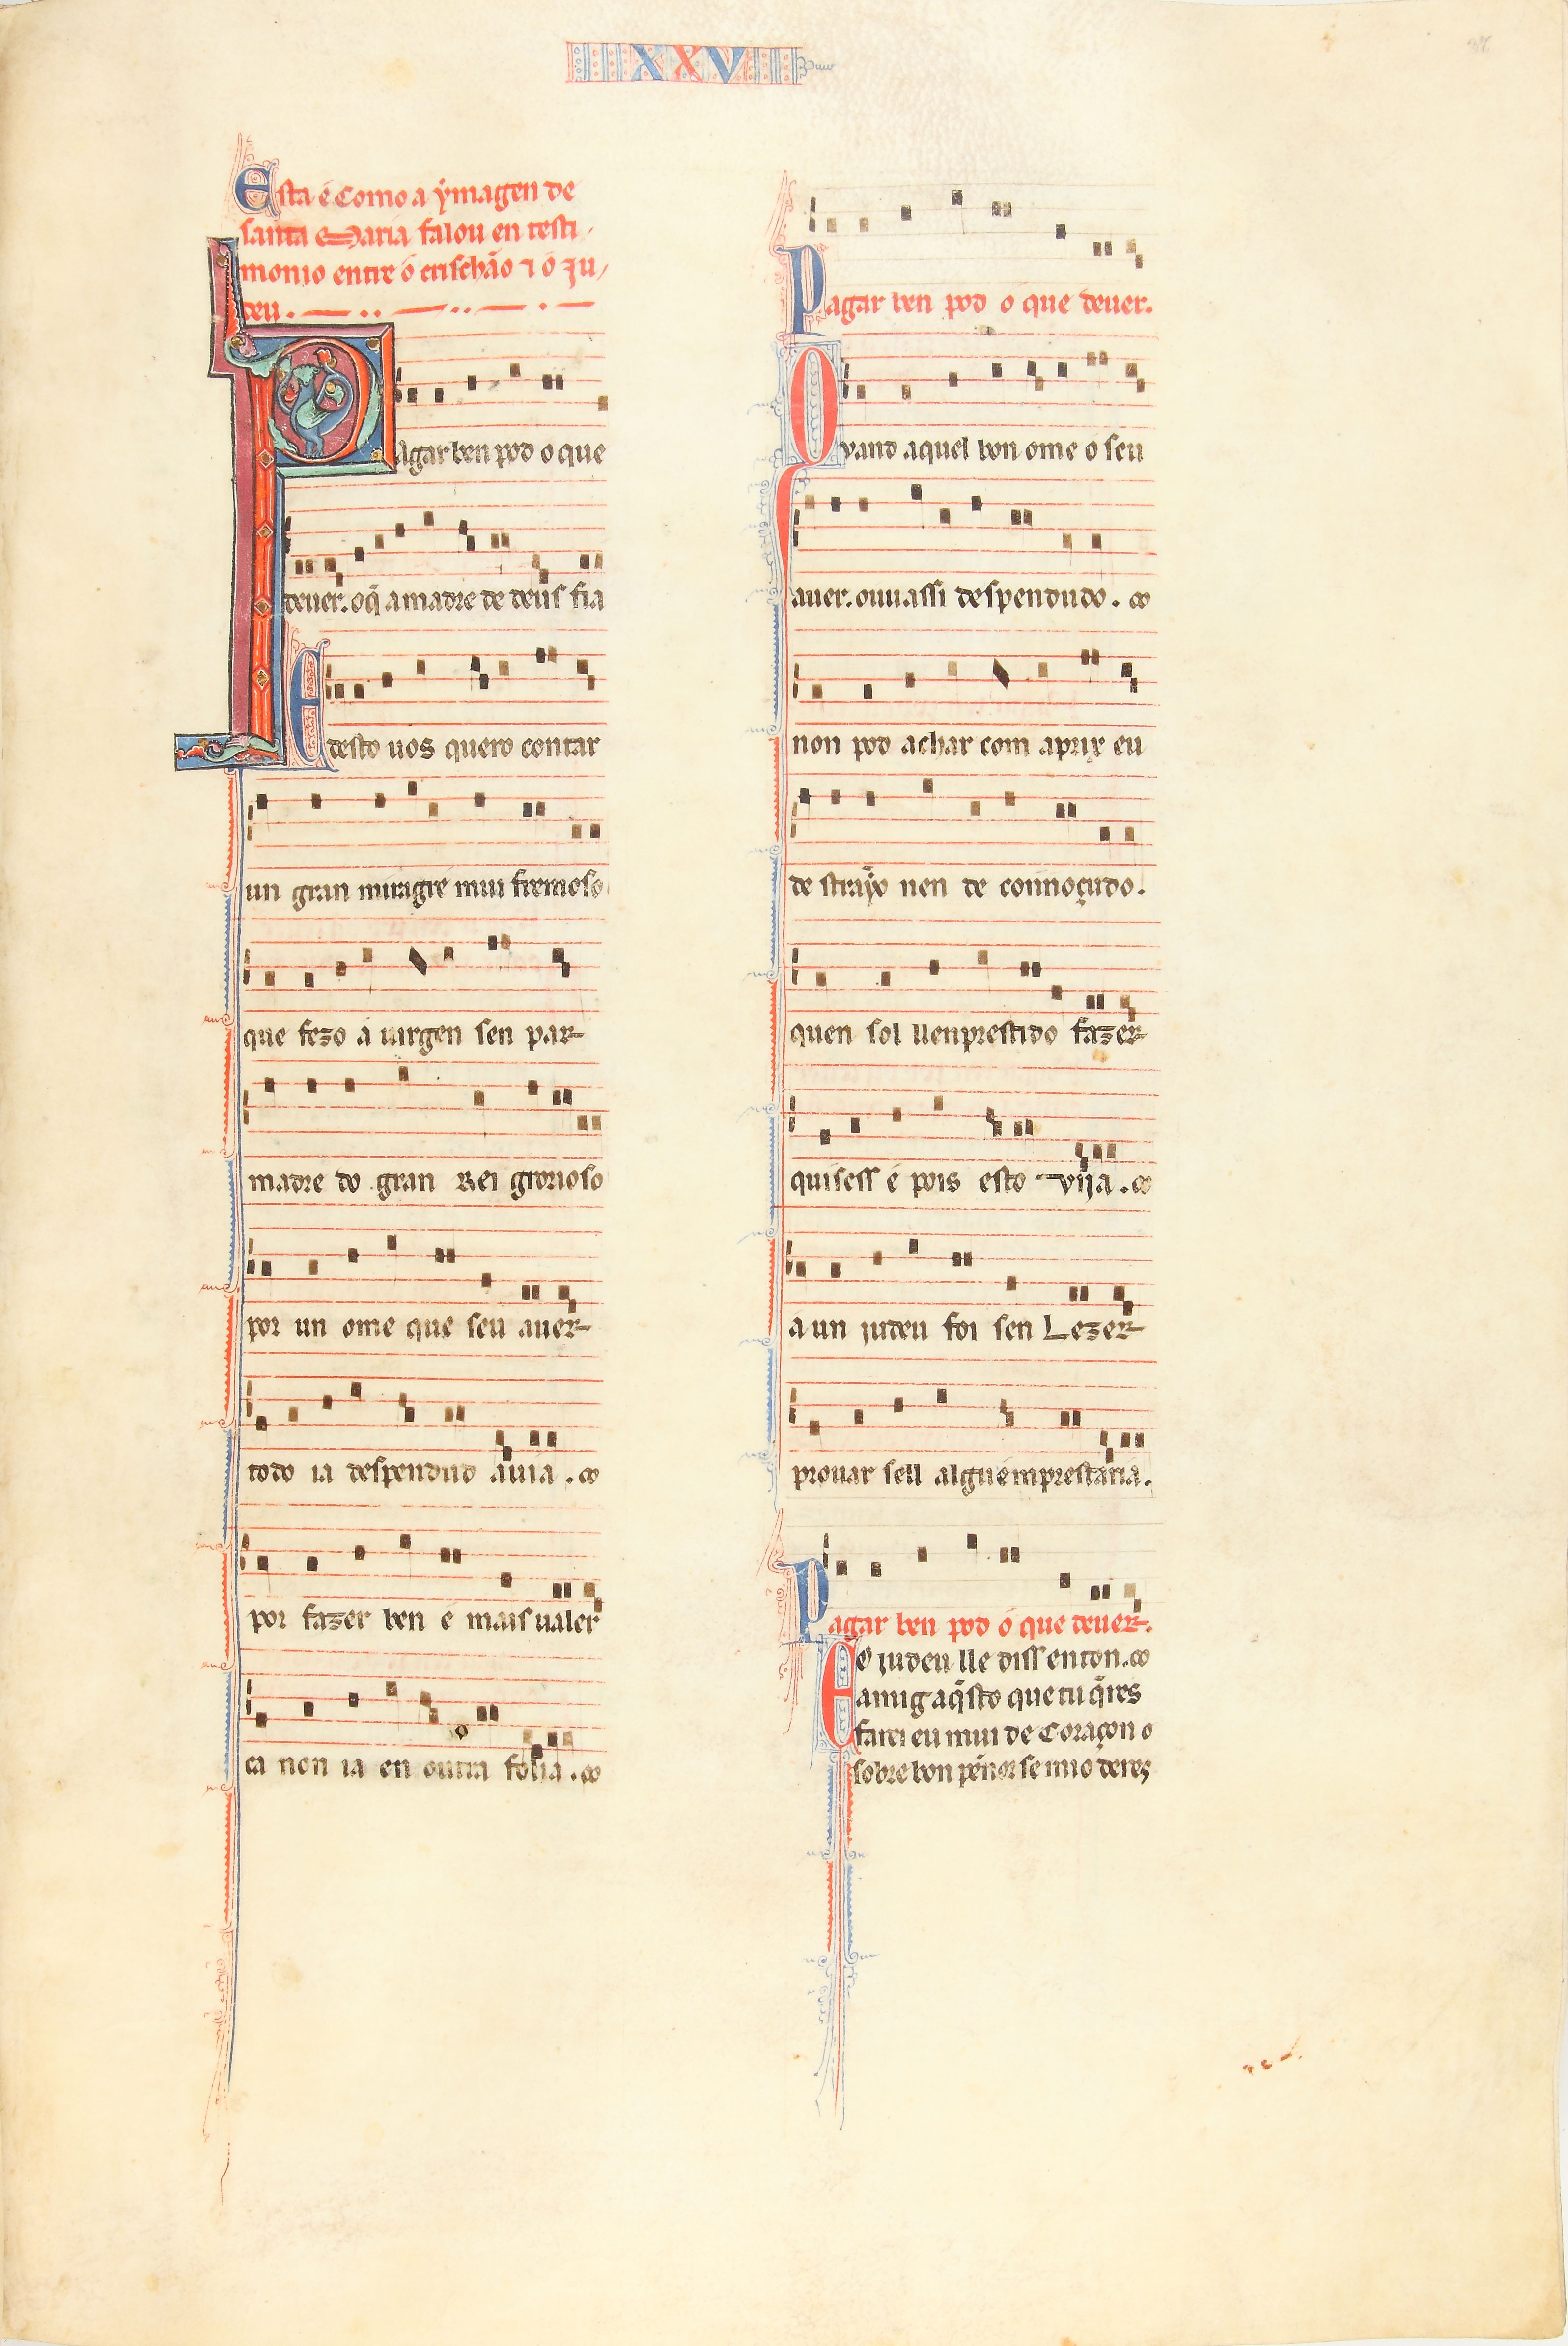 XXV
Esta é Como a ẏmagen de
santa Maria falou en testi
monio entre ó crischão ⁊ ó Ju
deu.
Pagar ben pod o que
deuer. o q̃ a madre de deus fia
E desto uos quero contar
un gran miragre mui fremoso
que fezo á uirgen sen par
madre do gran Rei grorioso
por un ome que seu auer
todo ia despendud áuia.
por fazer ben e mais ualer
ca non ia en outra folia.
Pagar ben pod o que deuer.
Quand aquel bon ome o seu
auer. ouuassi despendudo.
non pod achar com aprix eu
de strãyo nen de connoçudo.
quen sol llenprestido fazer
quisess e pois esto vija.
a un judeu foi sen Lezer
prouar sell alguémprestaria.
Pagar ben pod ó que deuer.
E o judeu lle diss enton.
amig aq̃sto que tu q̃res
farei eu mui de Coraçon
sobre bon pẽnor se mio deres